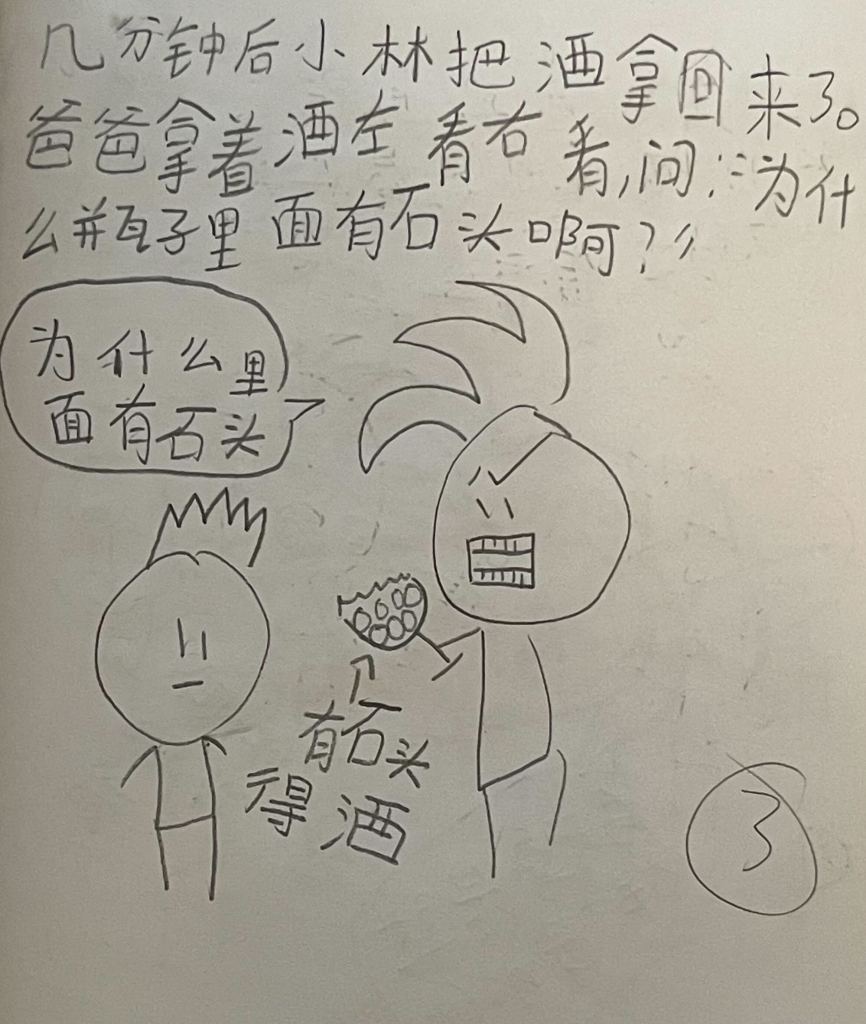 几分钟后小林把酒拿回来了。
爸爸拿着酒左看右看,问:“为什
么瓶子里面有石头啊?”
为什么里
面有石头
有石头
得酒
3